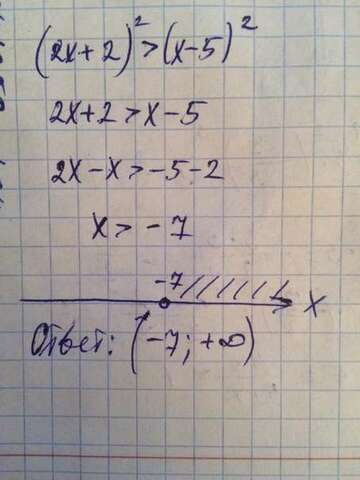 (2x+2)²>(x-5)²
2x+2>x-5
2x-x>-5-2
x>-7
-7
x
Ответ: (-7; +∞)